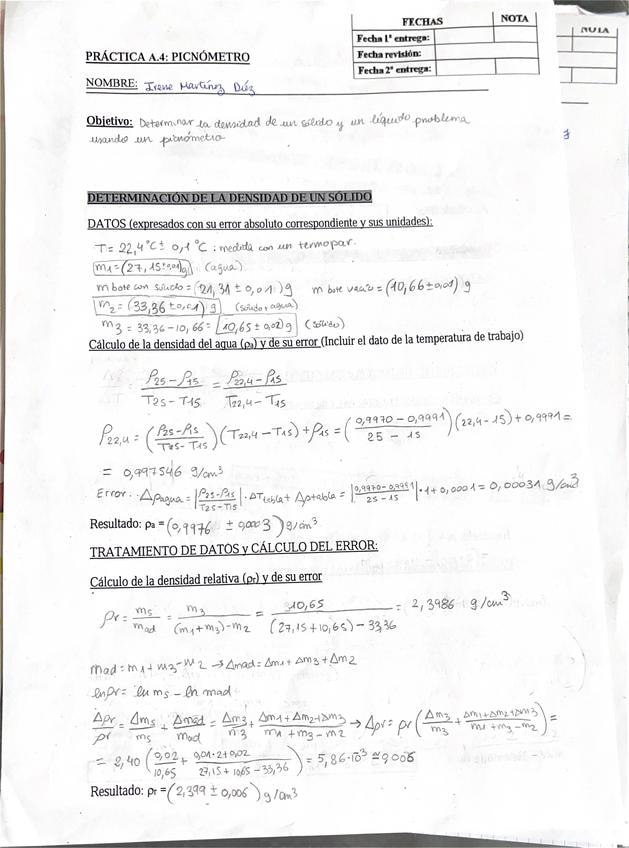 FECHAS NOTA
Fecha 1ª entrega:
Fecha revisión:
Fecha 2ª entrega:
NOTA
PRÁCTICA A.4: PICNÓMETRO
NOMBRE: Irene Martínez Díez
Objetivo: Determinar la densidad de un sólido y un líquido problema
usando un picnómetro
DETERMINACIÓN DE LA DENSIDAD DE UN SÓLIDO
DATOS (expresados con su error absoluto correspondiente y sus unidades):
T = 22,4°C ± 0,1°C ; medida con un termopar.
m1 = (27,15±0,01)g (agua)
m bote con sólido = (21,31 ± 0,01) g m bote vacío = (10,66±0,01) g
m2 = (33,36 ±0,01) g (sólido + agua)
m3 = 33,36 - 10,66 = (10,65 ± 0,02) g (sólido)
Cálculo de la densidad del agua (ρa) y de su error (Incluir el dato de la temperatura de trabajo)
(ρ25 - ρ15)/(T25 - T15) = (ρ22,4 - ρ15)/(T22,4 - T15)
ρ22,4 = ((ρ25 - ρ15)/(T25 - T15)) (T22,4 - T15) + ρ15 = ((0,9970 - 0,9991)/(25 - 15)) (22,4 - 15) + 0,9991 =
= 0,997546 g/cm³
Error: Δρagua = |(ρ25 - ρ15)/(T25 - T15)| · ΔTtabla + Δρtabla = |(0,9970 - 0,9991)/(25 - 15)| · 1 + 0,0001 = 0,00031 g/cm³
Resultado: ρa = (0,9976 ± 0,0003) g/cm³
TRATAMIENTO DE DATOS y CÁLCULO DEL ERROR:
Cálculo de la densidad relativa (ρr) y de su error
ρr = ms/mad = m3/((m1 + m3) - m2) = 10,65/((27,15 + 10,65) - 33,36) = 2,3986 g/cm³
mad = m1 + m3 - m2 → Δmad = Δm1 + Δm3 + Δm2
lnρr = ln ms - ln mad
Δρr/ρr = Δms/ms + Δmad/mad = Δm3/m3 + (Δm1 + Δm2 + Δm3)/(m1 + m3 - m2) → Δρr = ρr (Δm3/m3 + (Δm1 + Δm2 + Δm3)/(m1 + m3 - m2)) =
= 2,40 (0,02/10,65 + (0,01·2+0,02)/(27,15 + 10,65 - 33,36)) = 5,86·10³ ≃ 0,006
Resultado: ρr = (2,399 ± 0,006) g/cm³